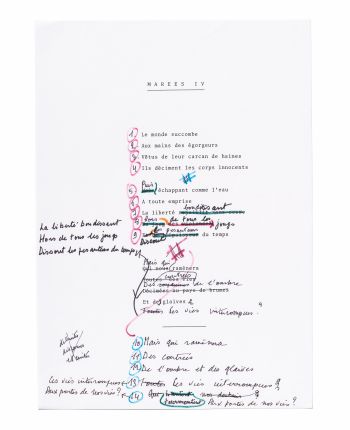 MAREES IV
1 Le monde succombe
2 Aux mains des égorgeurs
3 Vêtus de leur carcan de haines
4 Ils déciment les corps innocents
#
Puis
5 échappant comme l'eau
6 A toute emprise
bondissant
7 La liberté
8 Hors de tous les jougs
9 pesanteurs du temps
Dissout
La liberté bondissant
Hors de tous les jougs
Dissout les pesanteurs du temps
#
Mais qui
Qui nous ramènera
contrées
Des de l'ombre
Décimées au pays de brumes
Et des glaives
Toutes les vies interrompues ?
10 Mais qui ramènera
11 Des contrées
12 De l'ombre et des glaives
Les vies interrompues
13 Toutes les vies interrompues ?
Aux portes de nos vies ?
14 Aux portes de nos vies ?